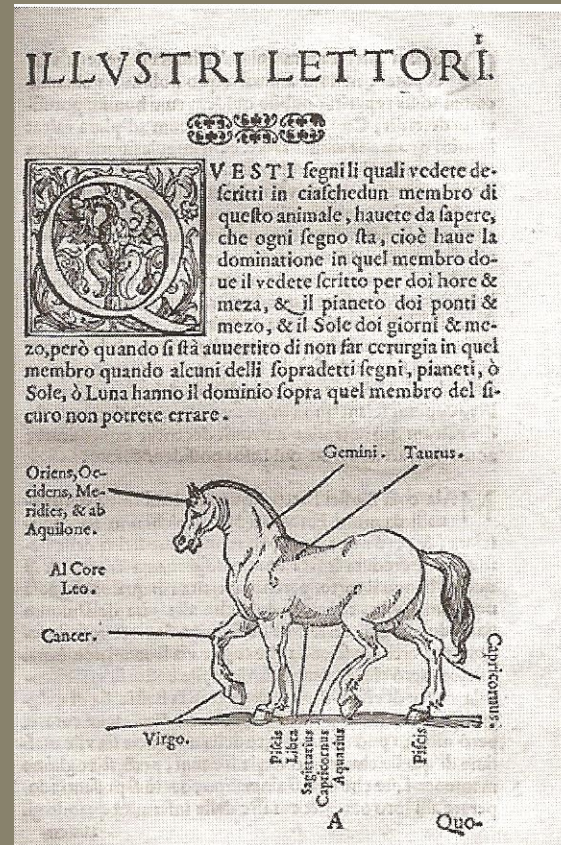 1
ILLVSTRI LETTORI.
QVESTI ſegni li quali vedete de-
ſcritti in ciaſchedun membro di
queſto animale, hauete da ſapere,
che ogni ſegno ſta, cioè haue la
dominatione in quel membro do-
ue il vedete ſcritto per doi hore &
meza, & il pianeto doi ponti &
mezo, & il Sole doi giorni & me-
zo, però quando ſi ſtà auuertito di non far cerurgia in quel
membro quando alcuni delli ſopradetti ſegni, pianeti, ò
Sole, ò Luna hanno il dominio ſopra quel membro del ſi-
curo non potrete errare.
Gemini. Taurus.
Oriens, Oc-
cidens, Me-
ridies, & ab
Aquilone.
Al Core
Leo.
Cancer.
Capricornus.
Virgo.
Piſcis
Libra
Sagittarius
Capricornus
Aquarius
Piſcis
A Quo-